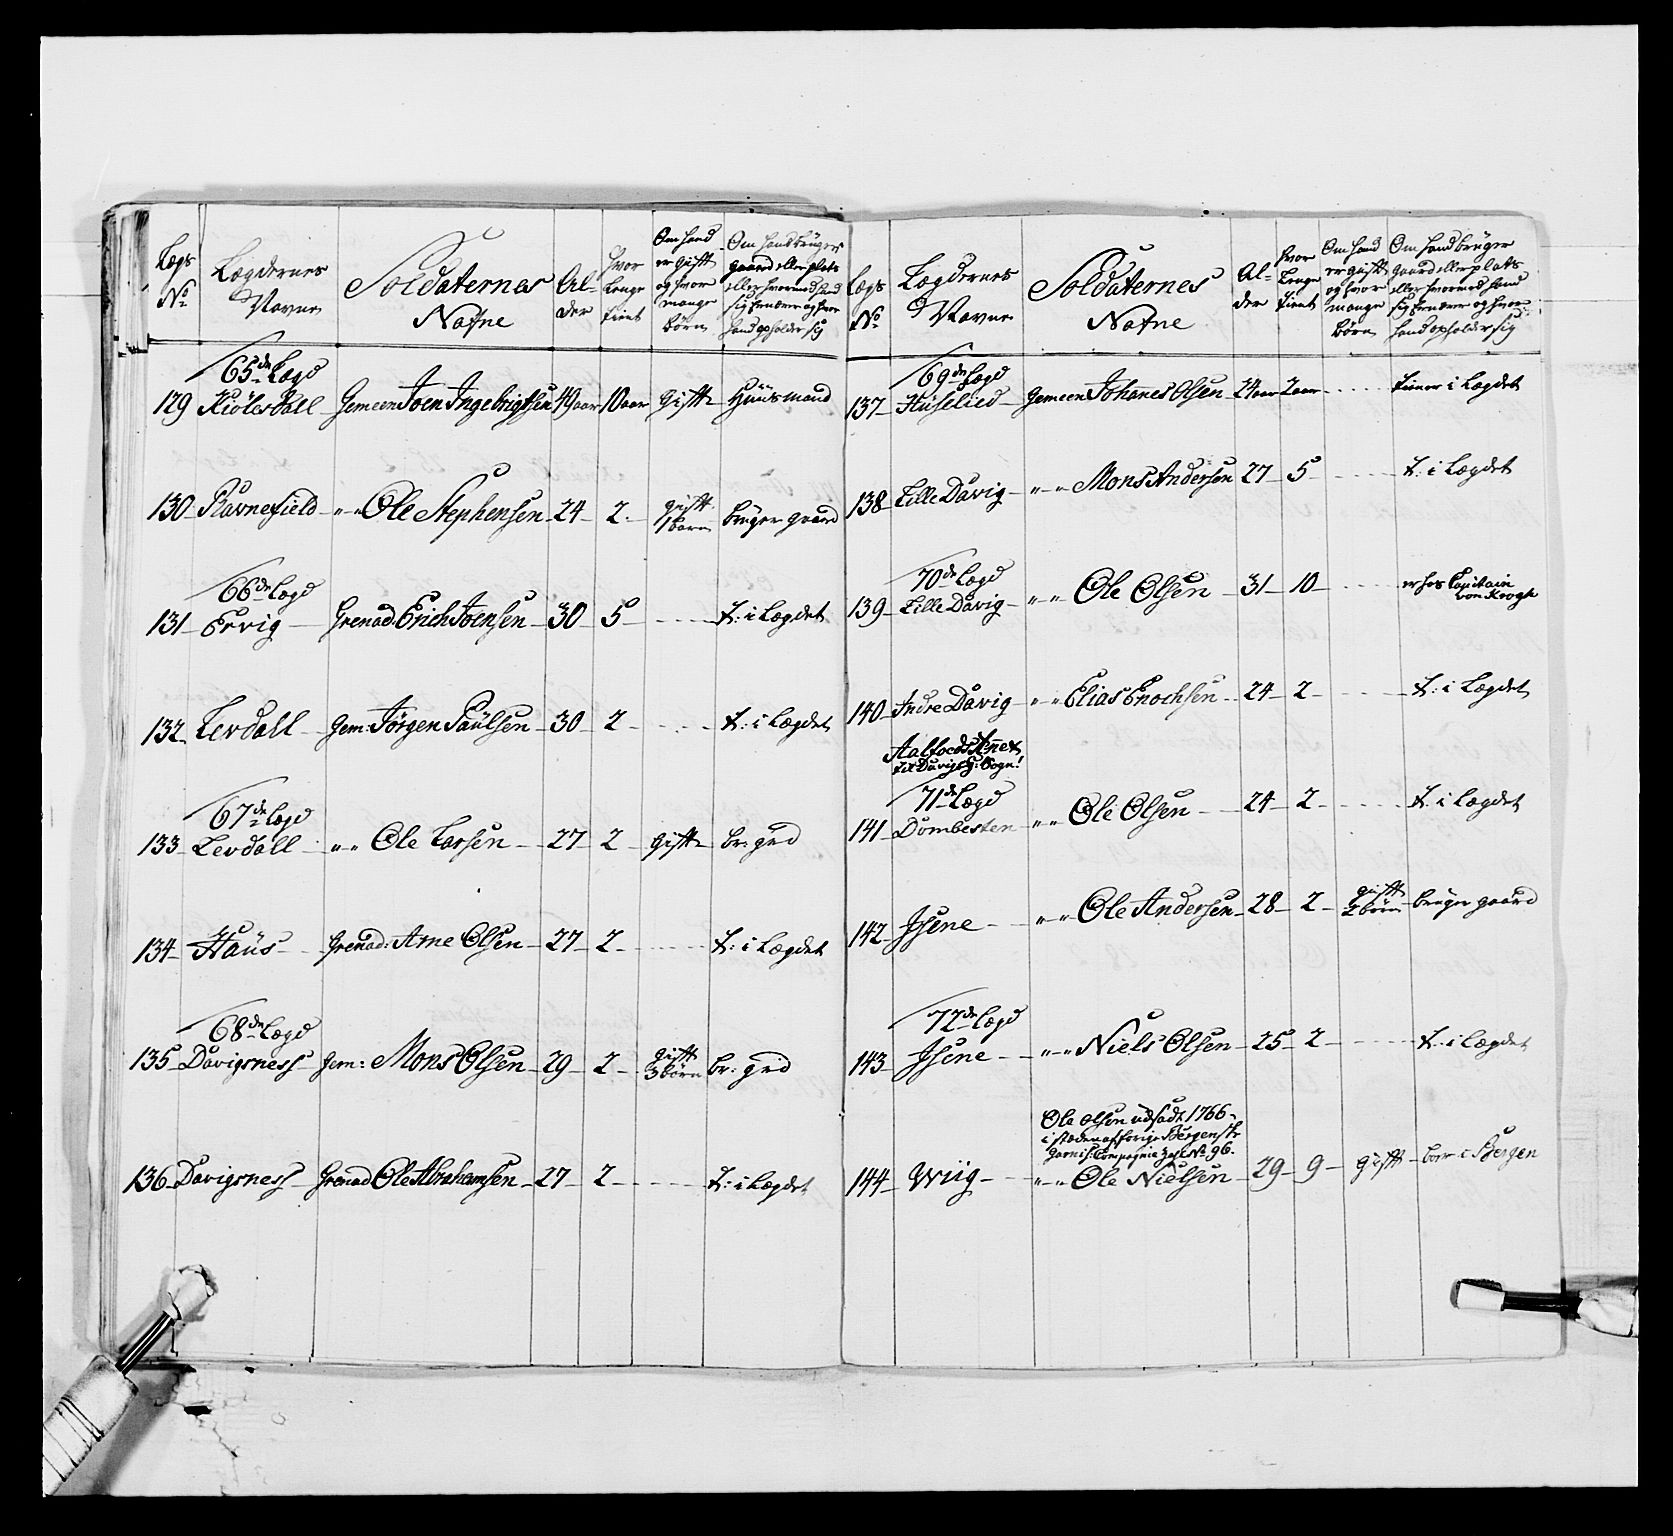 Legs No Lægdernes Navne Soldaternes Nafne Al-der Hvor Lenge tient Om hand er gift og hvor mange börn Om hand brüger gaard eller plats eller hvormed hand sig Ernærer og hvor hand opholder sig
65de Lægd
129 Kiölesdall Gemeen Joen Ingebrigtsen 49 aar 10 aar gift Huusmand
130 Stavnefield " " Ole Stephensen 24 2 gift 1 barn brüger gaard
66de Lægd
131 Ervig Grenad: Erich Joensen 30 5 t: i Lægdet
132 Levdall Gem: Jörgen Paülsen 30 2 t: i Lægdet
67de Lægd
133 Levdall " " Ole Larsen 27 2 gift br: grd
134 Haüs Grenad: Arne Olsen 27 2 t: i Lægdet
68de Lægd
135 Davigsness Gem: Mons Olsen 29 2 gift 3 börn br: grd
136 Davigsness Grenad Ole Abrahamsen 27 2 t: i Lægdet
Legs No Lægdernes Navne Soldaternes Nafne Al-der Hvor Lenge tient Om hand er gift og hvor mange Börn Om hand brüger gaard eller plats eller hvormed hand sig Ernærer og hvor hand opholder sig
69de Lægd
137 Hüselied Gemeen Johanes Olsen 24 aar 2 aar tiener i Lægdet
138 Lille Davig " " Mons Andersen 27 5 t: i Lægdet
70de Lægd
139 Lille Davig " " Ole Olsen 31 10 er hos Capitain von Krogh
140 Indre Davig " " Elias Enochsen 24 2 t: i Lægdet
Aalfoeds Anex
til Davigs H: Sogn!
71de Lægd
141 Dombesten " " Ole Olsen 24 2 t: i Lægdet
142 Isene " " Ole Andersen 28 2 gift 2 börn brüger gaard
72de Lægd
143 Isene " " Niels Olsen 25 2 t: i Lægdet
Ole Olsen udsadt 1766
i stæden af forige Bergenske
Garnis: Compagnie No 96.
144 Wiig " " Ole Nielsen 29 9 gift boer i Bergen